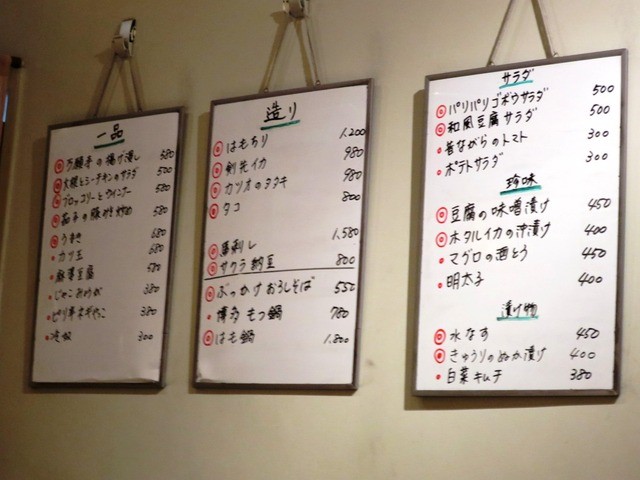 一品
万願寺の揚げ浸し 580
大根とシーチキンのサラダ 500
ブロッコリーとウインナー 580
茄子の豚肉炒め 580
うまき 680
カツ玉 680
麻婆豆腐 580
じゃこみょうが 380
ピリ辛ネギやっこ 380
冷奴 300
造り
はもちり 1,200
剣先イカ 980
カツオのタタキ 980
タコ 800
馬刺し 1,580
サクラ納豆 800
ぶっかけおろしそば 550
博多もつ鍋 780
はも鍋 1,800
サラダ
パリパリゴボウサラダ 500
和風豆腐サラダ 500
昔ながらのトマト 300
ポテトサラダ 300
珍味
豆腐の味噌漬け 450
ホタルイカの沖漬け 400
マグロの酒とう 450
明太子 400
漬け物
水なす 450
きゅうりのぬか漬け 400
白菜キムチ 380